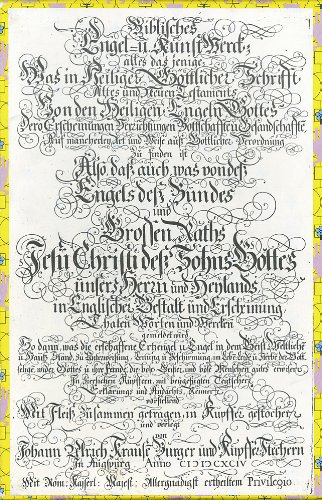 Biblisches
Engel- u. Kunst Werck;
alles das jenige,
Was in Heiliger Göttlicher Schrifft
Altes und Neuen Testaments
Von den Heiligen Engeln Gottes
Dero Erscheinungen Verrichtungen Bottschafften Gesandschafften
Auf mancherley Art und Weise auß Göttlicher Verordnung
zu finden ist
Also daß auch was von deß
Engels deß Bundes
und
Grossen Raths
Jesu Christi deß Sohns Gottes
unsers Herrn und Heylands
in Englischer Gestalt und Erscheinung
Thaten Worten und Wercken
So dann, was die erschaffene Ertzengel u. Engel in dem Geist- Weltlich
u. Hauß Stand, zu
wider Gottes u. ihre Feinde, die böse Geister, und böse Menschen
In Kupffern, mit beygefügten Teutschen
Erklärungs und Andachts Reimen
vorstellend
Mit Fleiß zusammen getragen, in Kupffer gestochen
und verlegt
von
Johann Ulrich Krauß Burger und Kupfferstechern
In Augspurg Anno CIƆ IƆC XCIV
Mit Röm: Kayserl: Majest: Allergnädigst ertheiltem Privilegio